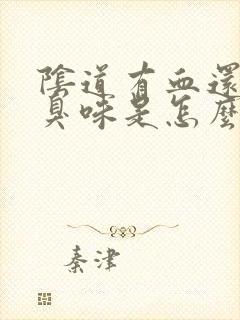 陰道有血還
臭味是怎麼
秦津